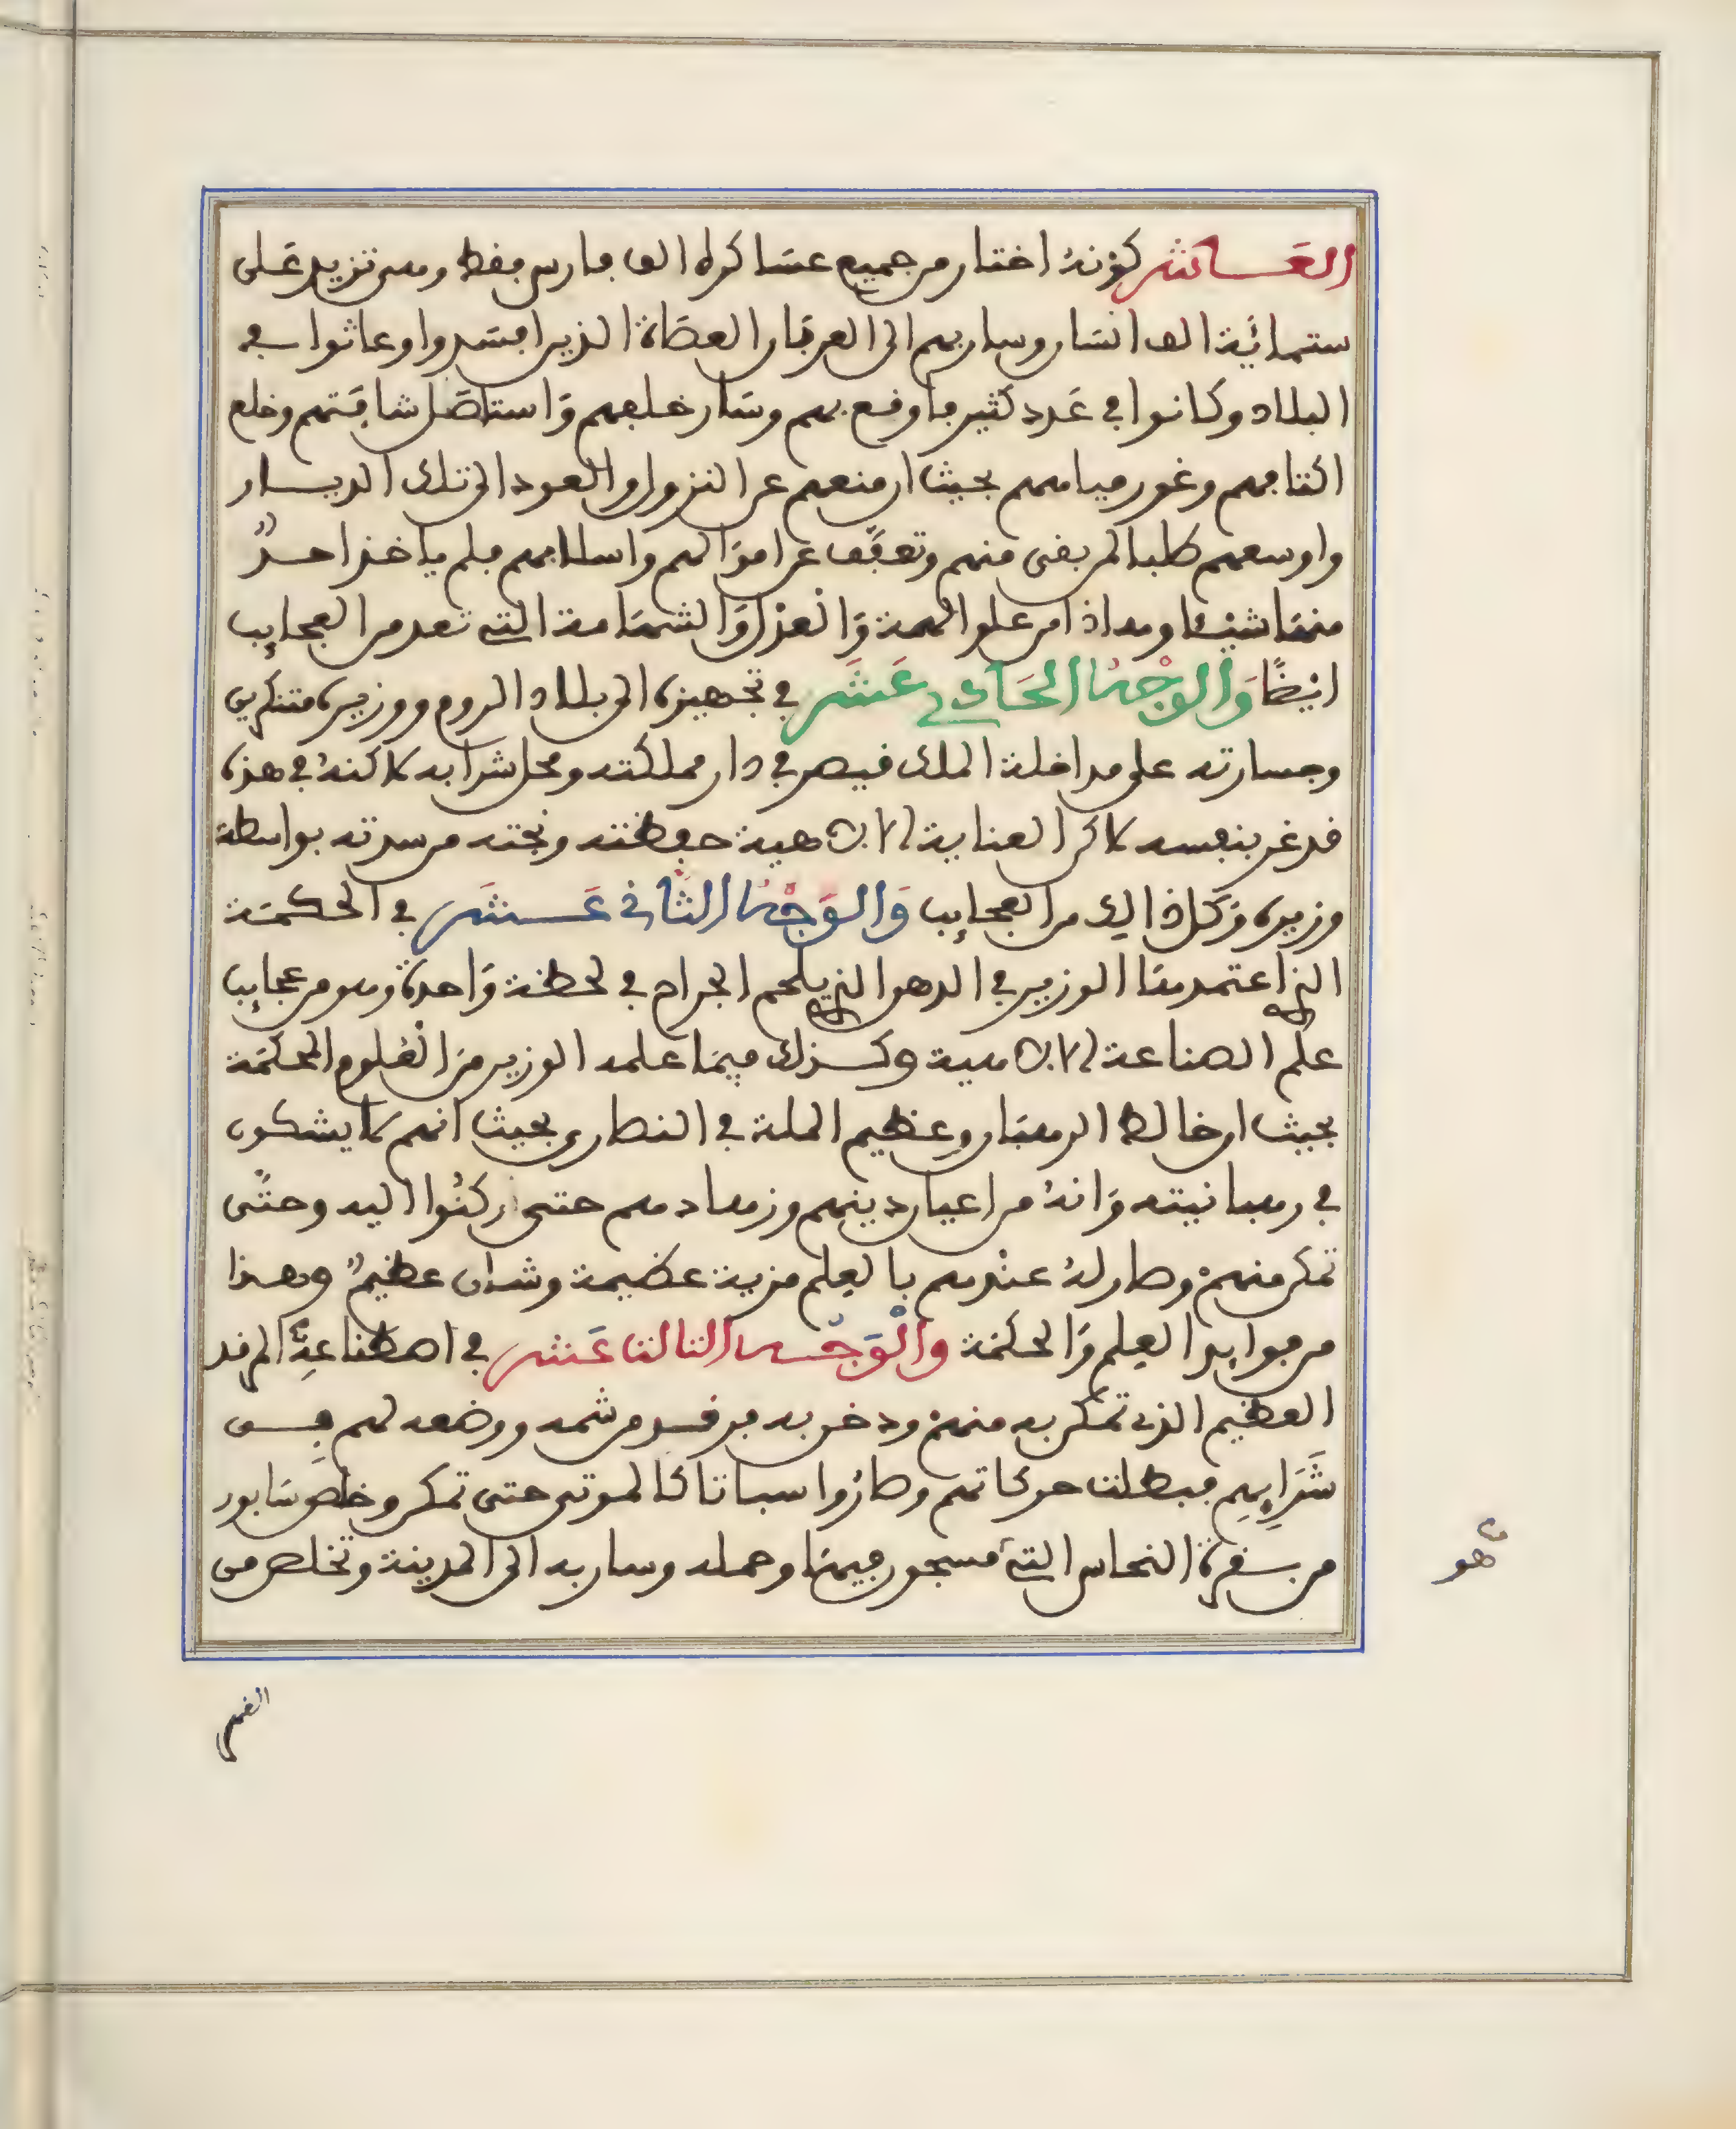 العَـاشر كونهُ اختار من جميع عسَاكره الف فارس فقط وهي تزيد عَلى
ستمائَية الف انسَان وسار بهم الى العربَان العصَاة الذين افسَدوا وعاثوا في
البلاد وكانوا في عَدد كثير فاوقع بهم وسَار خلفهم وَاستاصَل شافتهم وخلع
اكتافهم وغور مياههم بحيث ان منعهم عن النزول والعود الى تلك الديـار
واوسعهم طلبا لمن بقى منهم وتعفّف عن اموَالهم واسلابهم فلم ياخذ احدٌ
منهَا شيئا وهذا من علو الهمة وَالعزل وَالشهَامة التي تعد من العجايب
ايضًا وَالوجْهُ الحَادي عَشَر في تجهيزه الى بلاد الروم ووزيره متنكرين
وجسارته على مداخلة الملك قيصر في دار مملكته ومحل شرابه لاكنهُ في هذه
قد غر بنفسه لاكن العناية الالاهية حفظته ونجته من سدته بواسطة
وزيره وَكل ذالك من العجايب وَالوَجْهُ الثَّاني عَـشَر في الحكمَة
الذي اعتمدهَا الوزير في الدهن الذي يلحم الجراح في لحظة وَاحدة وهو من عجايب
علم الصناعة الالاهية وكـذلك فيمَا علمه الوزير منَ العُلوم المحكمَة
بحيث ان خالط الرهبَان وعظيم الملة في النصارى بحيث انهم لا يشكون
في رهبانيته وَانهُ من اعيان دينهم وزهادهم حتى ركنُوا اليه وحتَّى
تمكن منهمْ وصار لهُ عندهم بالعِلم مزية عظيمة وشان عظيمٌ وهـذا
من فوايد العِلم وَالحكمَة والْوَجْـه الثالث عَشر في اصطناعِهِ المرقد
العظيم الذي تمكن به منهمْ ودخن به من قسم شمه ووضعه لهم في
شَرَابِهِم فبطلت حركاتهم وصارُوا سباتا كالموتى حتى تمكن وخلصَ سَابور
من بقرة النحاس التي مسجون فيهَا وحمله وسار به الى المدينة وتخلص من
هو
الغم